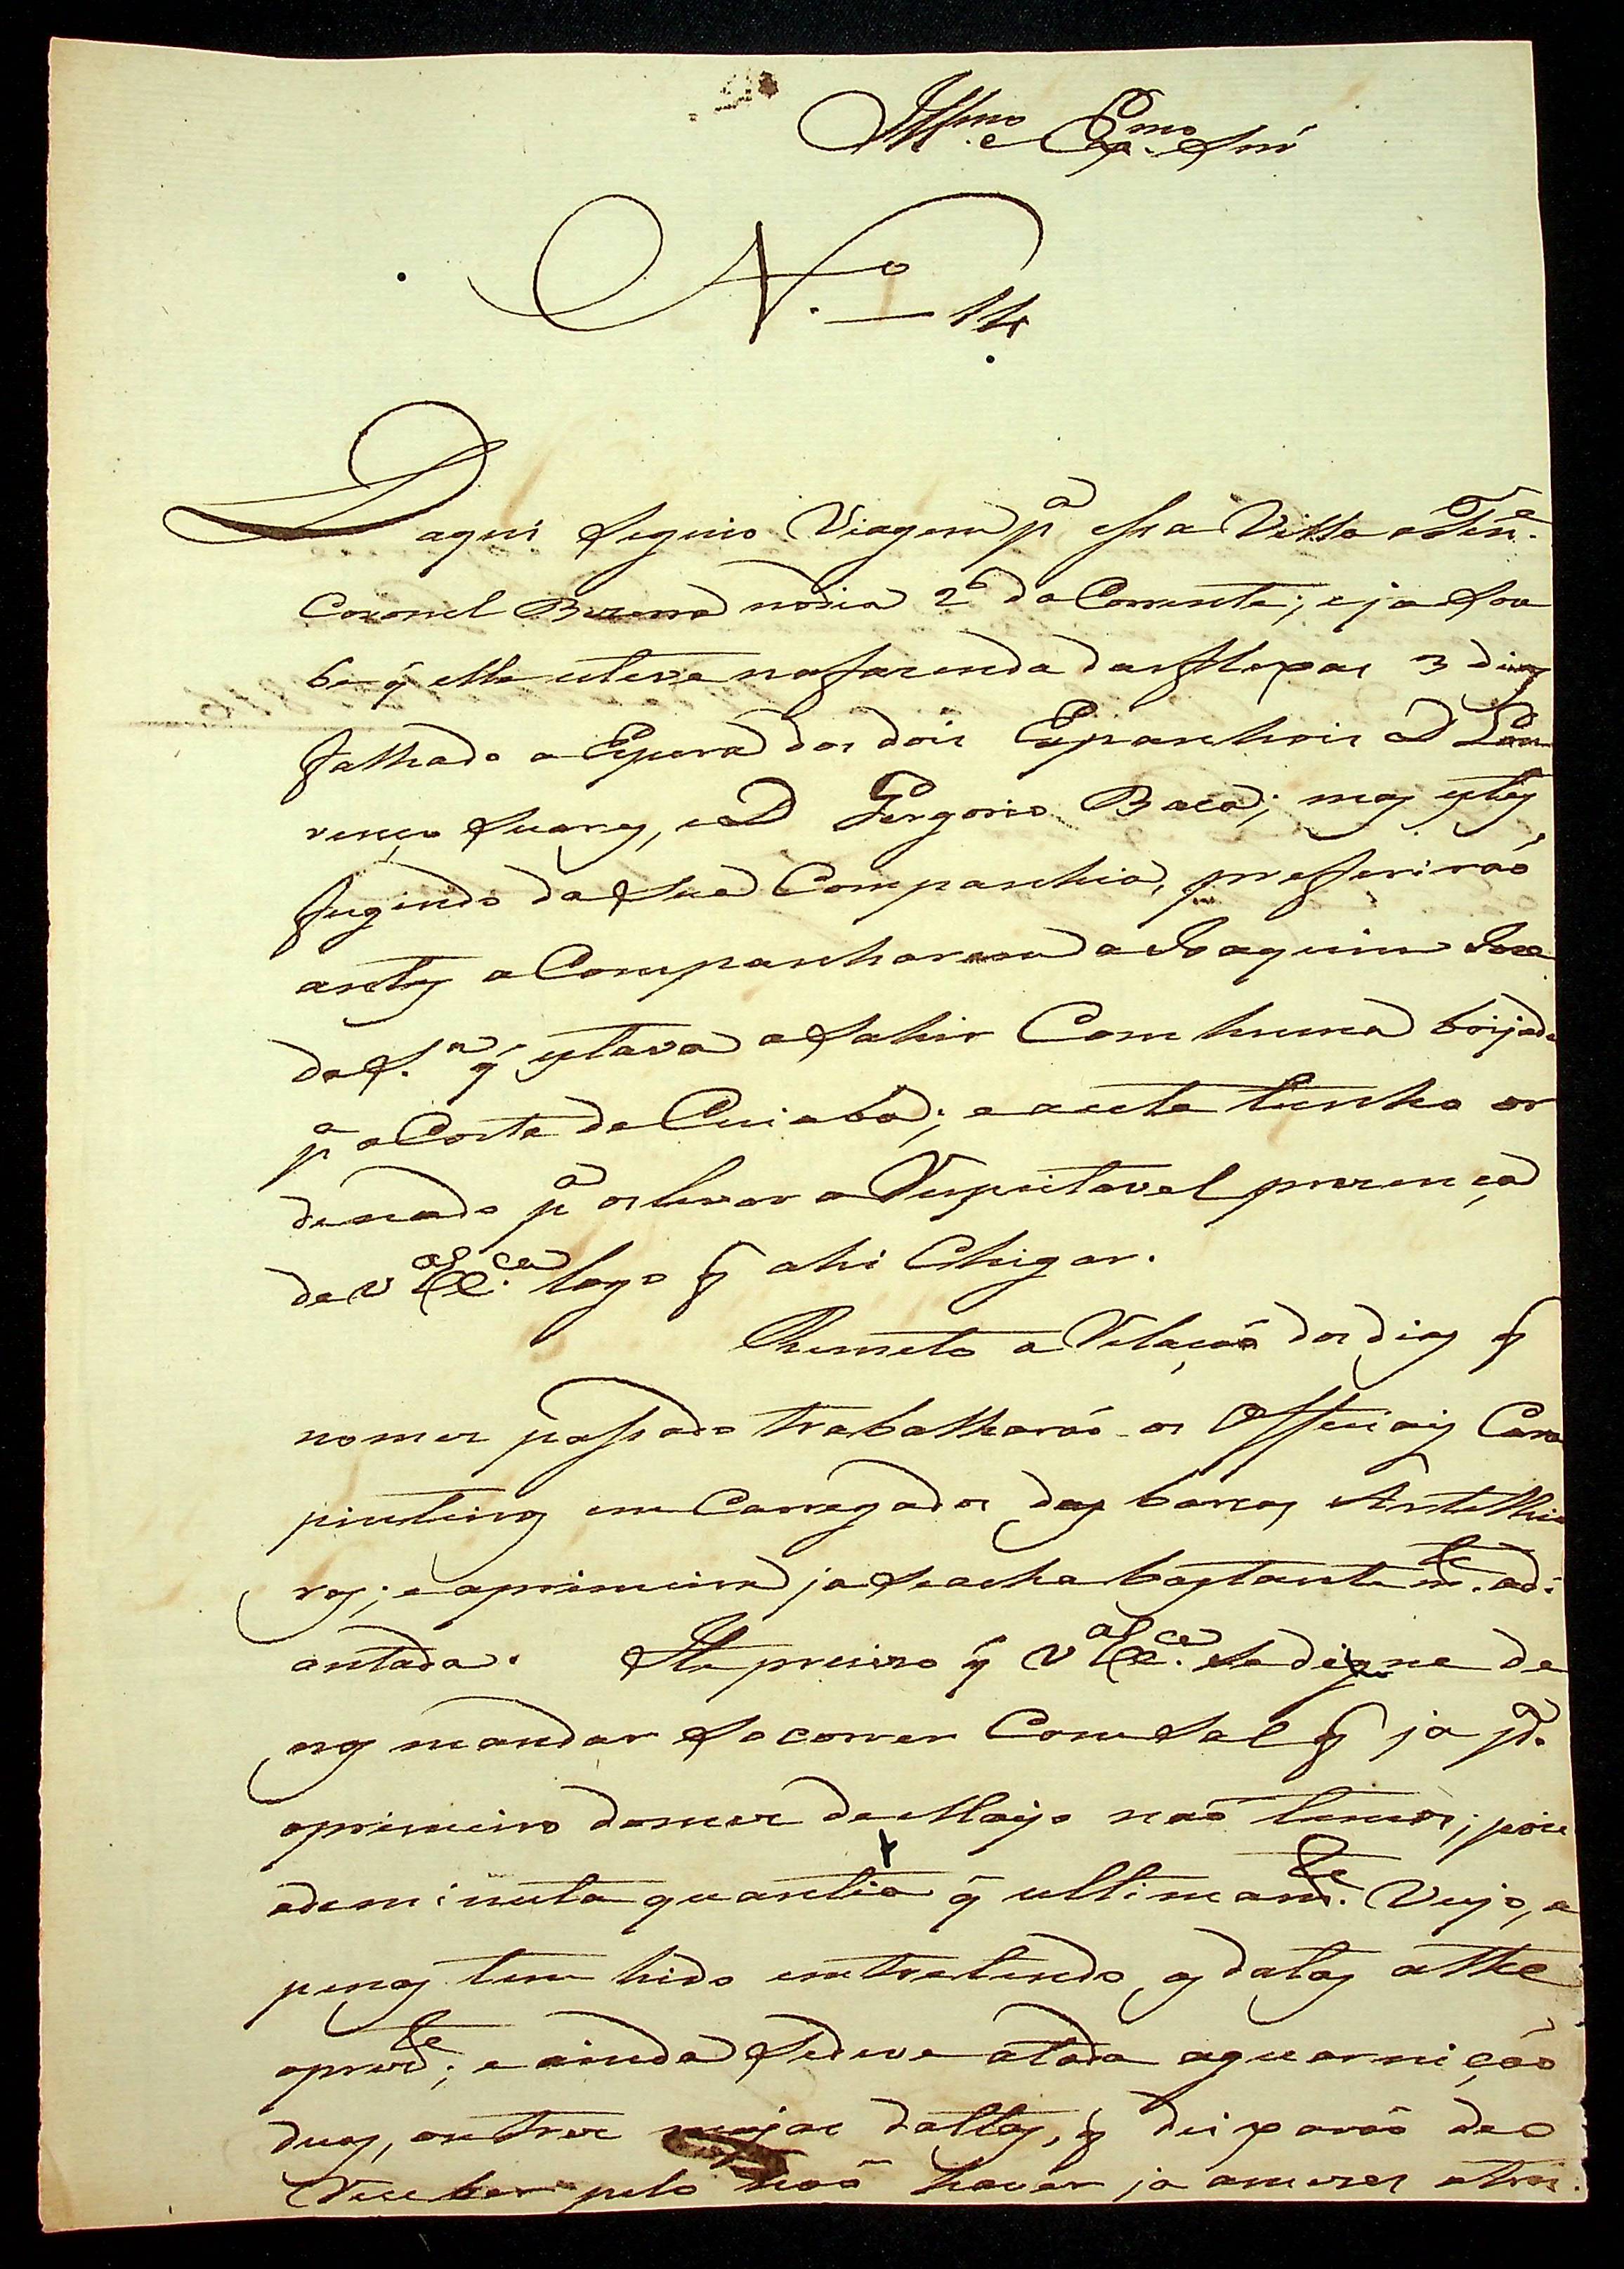 Illmo. e Exmo. Snr
N.o 14
Daqui seguio Viagem pa. essa Villa o Tene.
Coronel Bueno no dia 2 do Corrente; e ja sou
be q̃ elle esteve na fazenda das Flexas 3 dias
falhado a Espera dos dois Espanhois D Lou
renço Suares, e D Gergorio Baca; mas estes,
fugindo da sua Companhia, prefferiraõ
antes aCompanharem a Joaquim Jose
de S.a q̃ estava a sahir Com huma boijada
pa. o Corte de Cuiabá; e a este tenho or
denado pa. os levar a Respeitavel prezença
de V Exca. logo q̃ ahi Chigar.
Remeto a Relaçaõ dos dias q̃
no mez passado trabalharaõ os Officiais Cara
pinteiros em Carregados das barcas Artelhei
ras; e a primeira ja se acha bastantemte. adi
antada. He precizo q̃ V Exca. se digne de
nos mandar socorrer Com Sal q̃ ja pa.
o primeiro do mez de Maijo naõ temos; pois
a deminuta quantia q̃ ultimamte. Veijo, a
penas tem hido entretendo as datas athe
o prezte.; e ainda se deve a toda a guarniçaõ
duas, ou tres dellas, q̃ deixaraõ de
Receber pelo naõ haver ja a mezes atras.